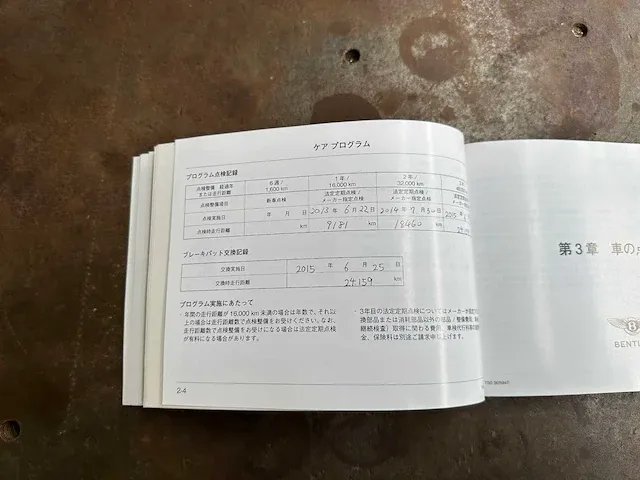 ケア プログラム
プログラム点検記録
点検整備 : 経過年または走行距離 6週/1,600 km 1年/16,000 km 2年/32,000 km
点検整備項目 新車点検 法定定期点検/メーカー指定点検 法定定期点検/メーカー指定点検
点検実施日 年 月 日 2013年 6月22日 2014年 7月30日 2015年
点検時走行距離 km 9181 km 18460 km
ブレーキパット交換記録
交換実施日 2015 年 6 月 25 日
交換時走行距離 24159 km
プログラム実施にあたって
・年間の走行距離が 16,000 km 未満の場合は年数で、それ以
上の場合は走行距離数で点検整備をお受けください。なお、
走行距離数で点検整備をお受けになる場合は法定定期点検
が有料になる場合があります。
・3年目の法定定期点検については
換部品または消耗部品以外の部品/整備費用、
継続検査）取得に関わる費用、車検代行料
金、保険料は別途ご請求申し上げます。
2-4
第3章 車の点
BENTL